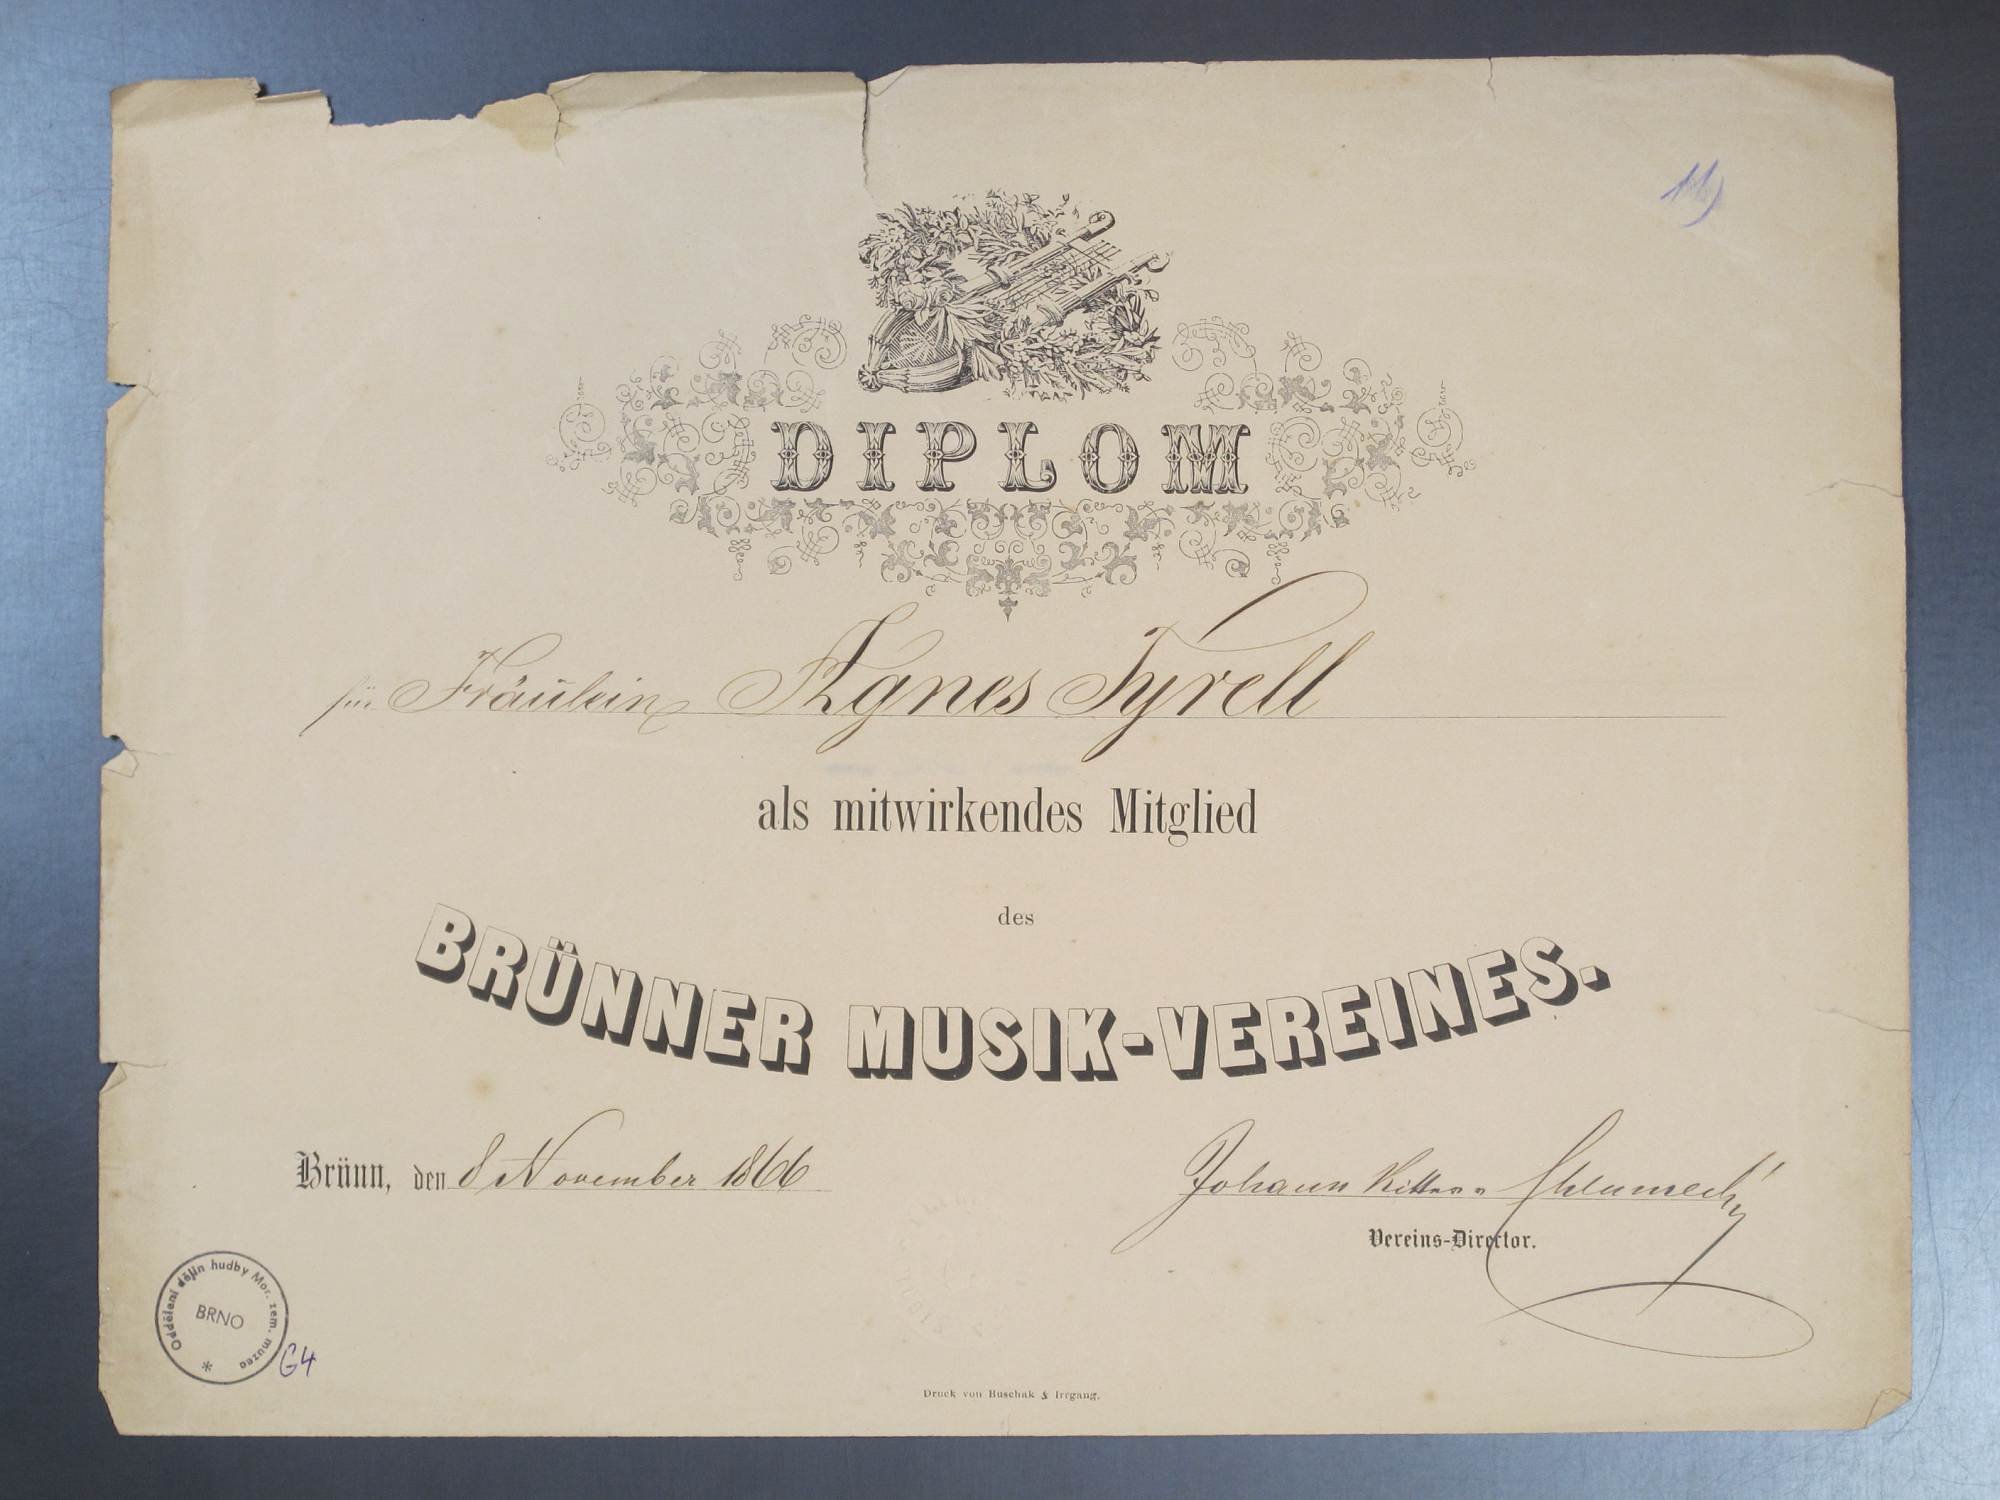 DIPLOM
für Fräulein Agnes Tyrell
als mitwirkendes Mitglied
des
BRÜNNER MUSIK-VEREINES.
Brünn, den 8 November 1866
Johann Ritter v Chlumecky
Vereins-Director.
Oddělení dějin hudby Mor. zem. muzea
BRNO
*
G4
Druck von Buschak & Irrgang.